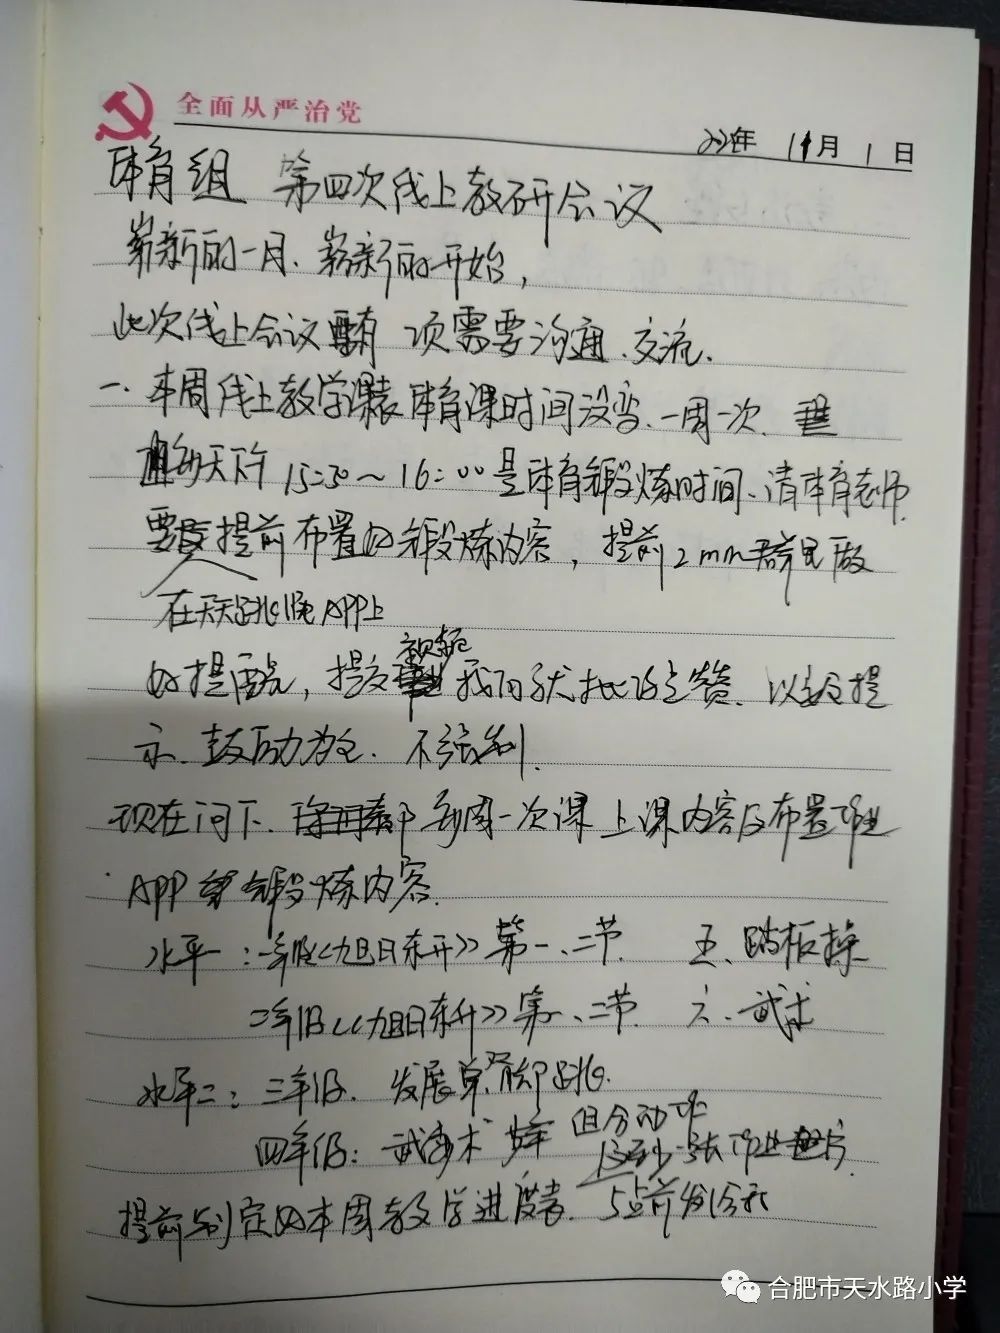 全面从严治党
年 11月 1日
体育组 第四次线上教研会议
崭新的一月、崭新的开始,
此次线上会议有 项需要沟通、交流.
一、本周线上教学课表体育课时间没变、一周一次、
每天下午15:30~16:00是体育锻炼时间、请体育老师
要提前布置好锻炼内容, 提前2min群里做
在天天跳绳APP上
视频
好提醒, 提交 我们予以批改点赞、以提
示、鼓励为主、不强制.
现在问下、 每周一次课 上课内容及布置作业
APP 锻炼内容.
水平一:一年级《旭日东升》第一、二节. 五、踏板操
二年级《旭日东升》第一、二节. 六、武术
水平二:三年级、发展单、双脚跳.
四年级:武术 组合动作
作业
提前制定好本周教学进度表. 5点前发给我
合肥市天水路小学